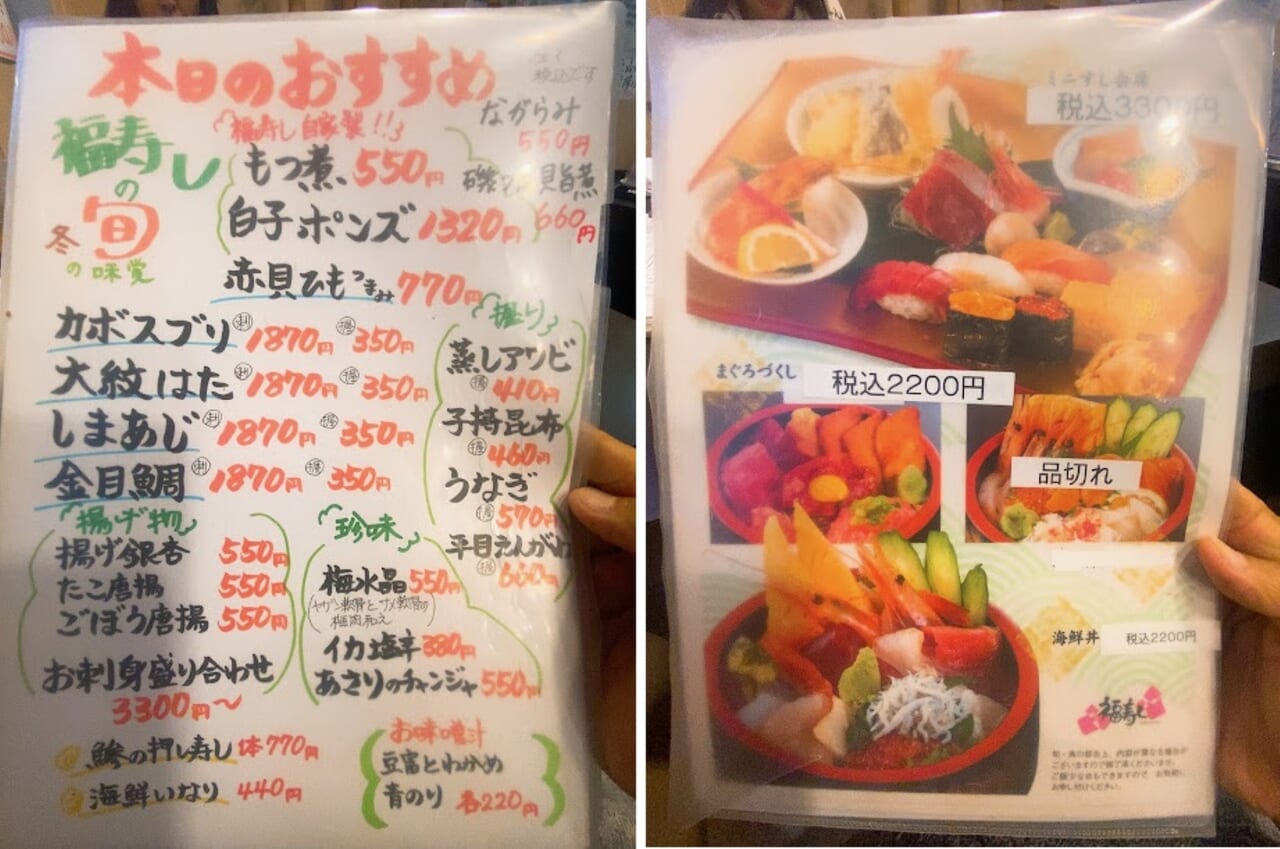 本日のおすすめ
税込です
福寿し
の
旬
冬
の味覚
福寿し自家製!!
もつ煮 550円
白子ポンズ 1320円
ながらみ
550円
貝旨煮
660円
赤貝ひもつまみ 770円
カボスブリ 刺 1870円 握 350円
大紋はた 刺 1870円 握 350円
しまあじ 刺 1870円 握 350円
金目鯛 刺 1870円 握 350円
握り
蒸しアワビ
握 410円
子持昆布
握 460円
うなぎ
握 570円
平目えんがわ
握 660円
揚げ物
揚げ銀杏 550円
たこ唐揚 550円
ごぼう唐揚 550円
珍味
梅水晶 550円
(ヤゲン軟骨とサメ軟骨の
梅肉和え)
イカ塩辛 380円
あさりのチャンジャ 550円
お刺身盛り合わせ
3300円〜
鯵の押し寿し 1本 770円
海鮮いなり 440円
お味噌汁
豆富とわかめ
青のり 各220円
ミニすし会席
税込3300円
まぐろづくし
税込2200円
品切れ
海鮮丼 税込2200円
福寿し
旬・魚の都合上、内容が異なる場合が
ございますのでご了承くださいませ。
ご飯少なめもできますので、お気軽に
お申し付けください。